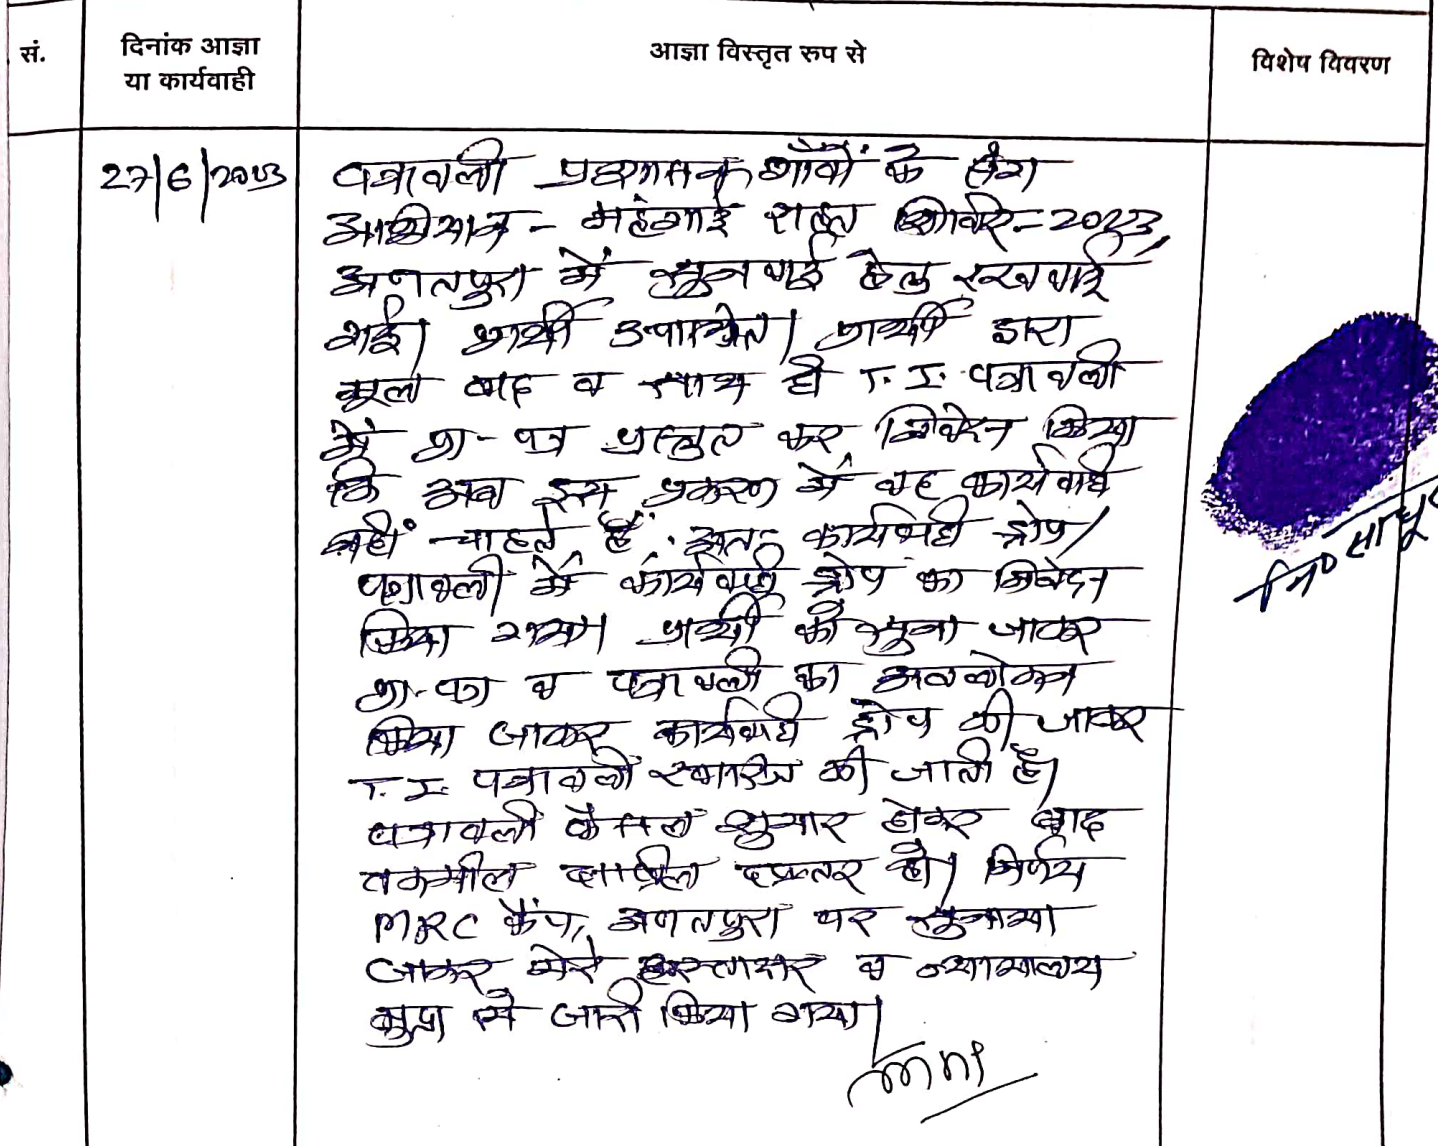 सं.
दिनांक आज्ञा
या कार्यवाही
आज्ञा विस्तृत रुप से
विशेष विवरण
27/6/2023
पत्रावली प्रशासन गाँवों के संग
अभियान - महंगाई राहत शिविर - 2023,
अणतपुरा में सुनवाई हेतु रखवाई
गई। प्रार्थी उपस्थित। प्रार्थी द्वारा
मूल वाद व साथ ही T.I. पत्रावली
में प्रा-पत्र प्रस्तुत कर, निवेदन किया
कि अब इस प्रकरण में वह कार्यवाही
नहीं चाहते हैं। अतः कार्यवाही ड्रोप।
पत्रावली में कार्यवाही ड्रोप का निवेदन
किया गया। प्रार्थी को सुना जाकर
प्रा-पत्र व पत्रावली का अवलोकन
किया जाकर कार्यवाही ड्रोप की जाकर
T.I. पत्रावली खारीज की जाती है।
पत्रावली फैसल शुमार होकर बाद
तकमील दाखिल दफ्तर हो। निर्णय
MRC कैंप, अणतपुरा पर सुनाया
जाकर मेरे हस्ताक्षर व न्यायालय
मुद्रा से जारी किया गया।
नि०